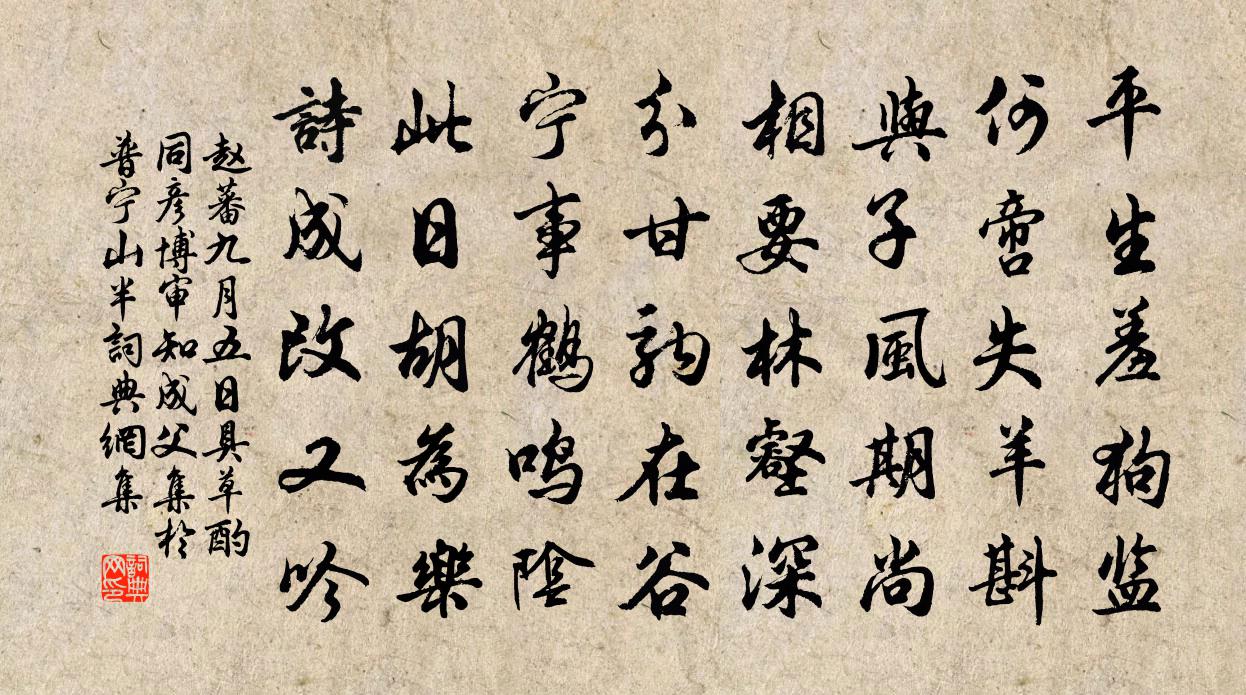 平生羞狗监
何啻失羊斟
與子風期尚
相要林壑深
分甘駒在谷
宁事鶴鸣陰
此日胡為樂
詩成改又吟
赵蕃九月五日具草酌
同彦博审知成父集於
普宁山半詞典網集
詞典网印